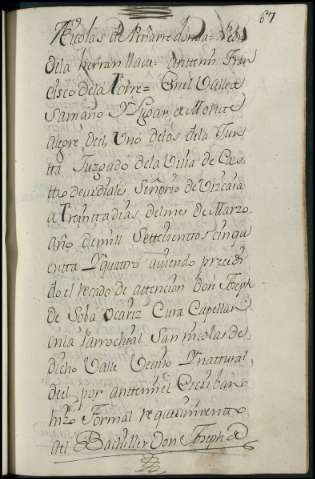 67
Nicolas de Peñarredonda =
de la herran llaue = Antemi Fran
cisco de la Torre = En el Valle de
Samano Y Lugar de Monte
Alegre del, Uno de los de la Jun
ta Juzgado de la Villa de Cas
tro de urdiales Señorio de Vizcaia
a treinta dias del mes de Marzo
año de mill Settecientos cinqu
enta Y quattro auiendo preced
do el recado de attencion Don Joseph
de Soba Ocariz Cura Capellan
en la Parrochial San nicolas de
dicho Valle Vecino Y nattural
del, por antte mi el Escribano
hizo formal requerimiento
del Bachiller Don Joseph de